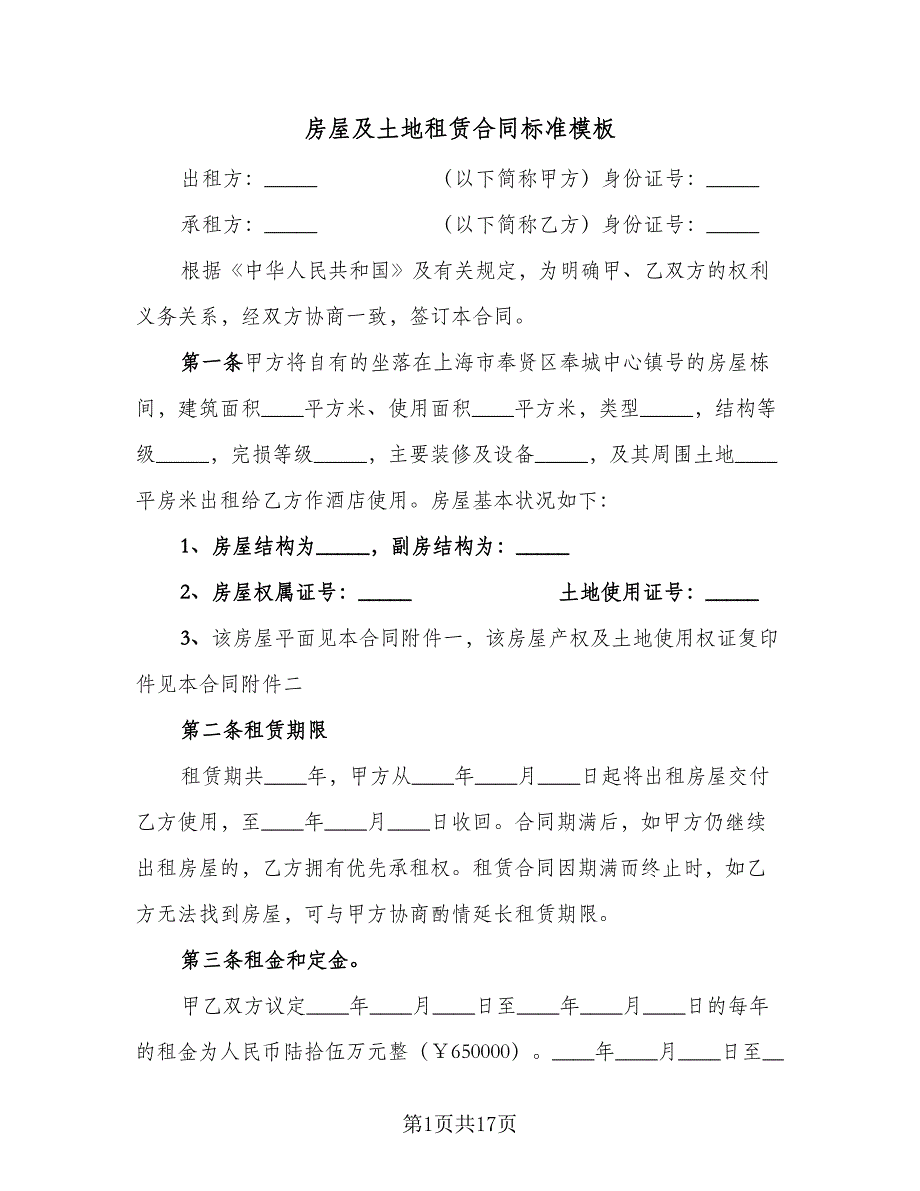 房屋及土地租赁合同标准模板
出租方：_____ （以下简称甲方）身份证号：_____
承租方：_____ （以下简称乙方）身份证号：_____
根据《中华人民共和国》及有关规定，为明确甲、乙双方的权利
义务关系，经双方协商一致，签订本合同。
第一条甲方将自有的坐落在上海市奉贤区奉城中心镇号的房屋栋
间，建筑面积____平方米、使用面积____平方米，类型_____，结构等
级_____，完损等级_____，主要装修及设备_____，及其周围土地____
平房米出租给乙方作酒店使用。房屋基本状况如下：
1、房屋结构为_____，副房结构为：_____
2、房屋权属证号：_____ 土地使用证号：_____
3、该房屋平面见本合同附件一，该房屋产权及土地使用权证复印
件见本合同附件二
第二条租赁期限
租赁期共____年，甲方从____年____月____日起将出租房屋交付
乙方使用，至____年____月____日收回。合同期满后，如甲方仍继续
出租房屋的，乙方拥有优先承租权。租赁合同因期满而终止时，如乙
方无法找到房屋，可与甲方协商酌情延长租赁期限。
第三条租金和定金。
甲乙双方议定____年____月____日至____年____月____日的每年
的租金为人民币陆拾伍万元整（￥650000）。____年____月____日至__
第1页共17页